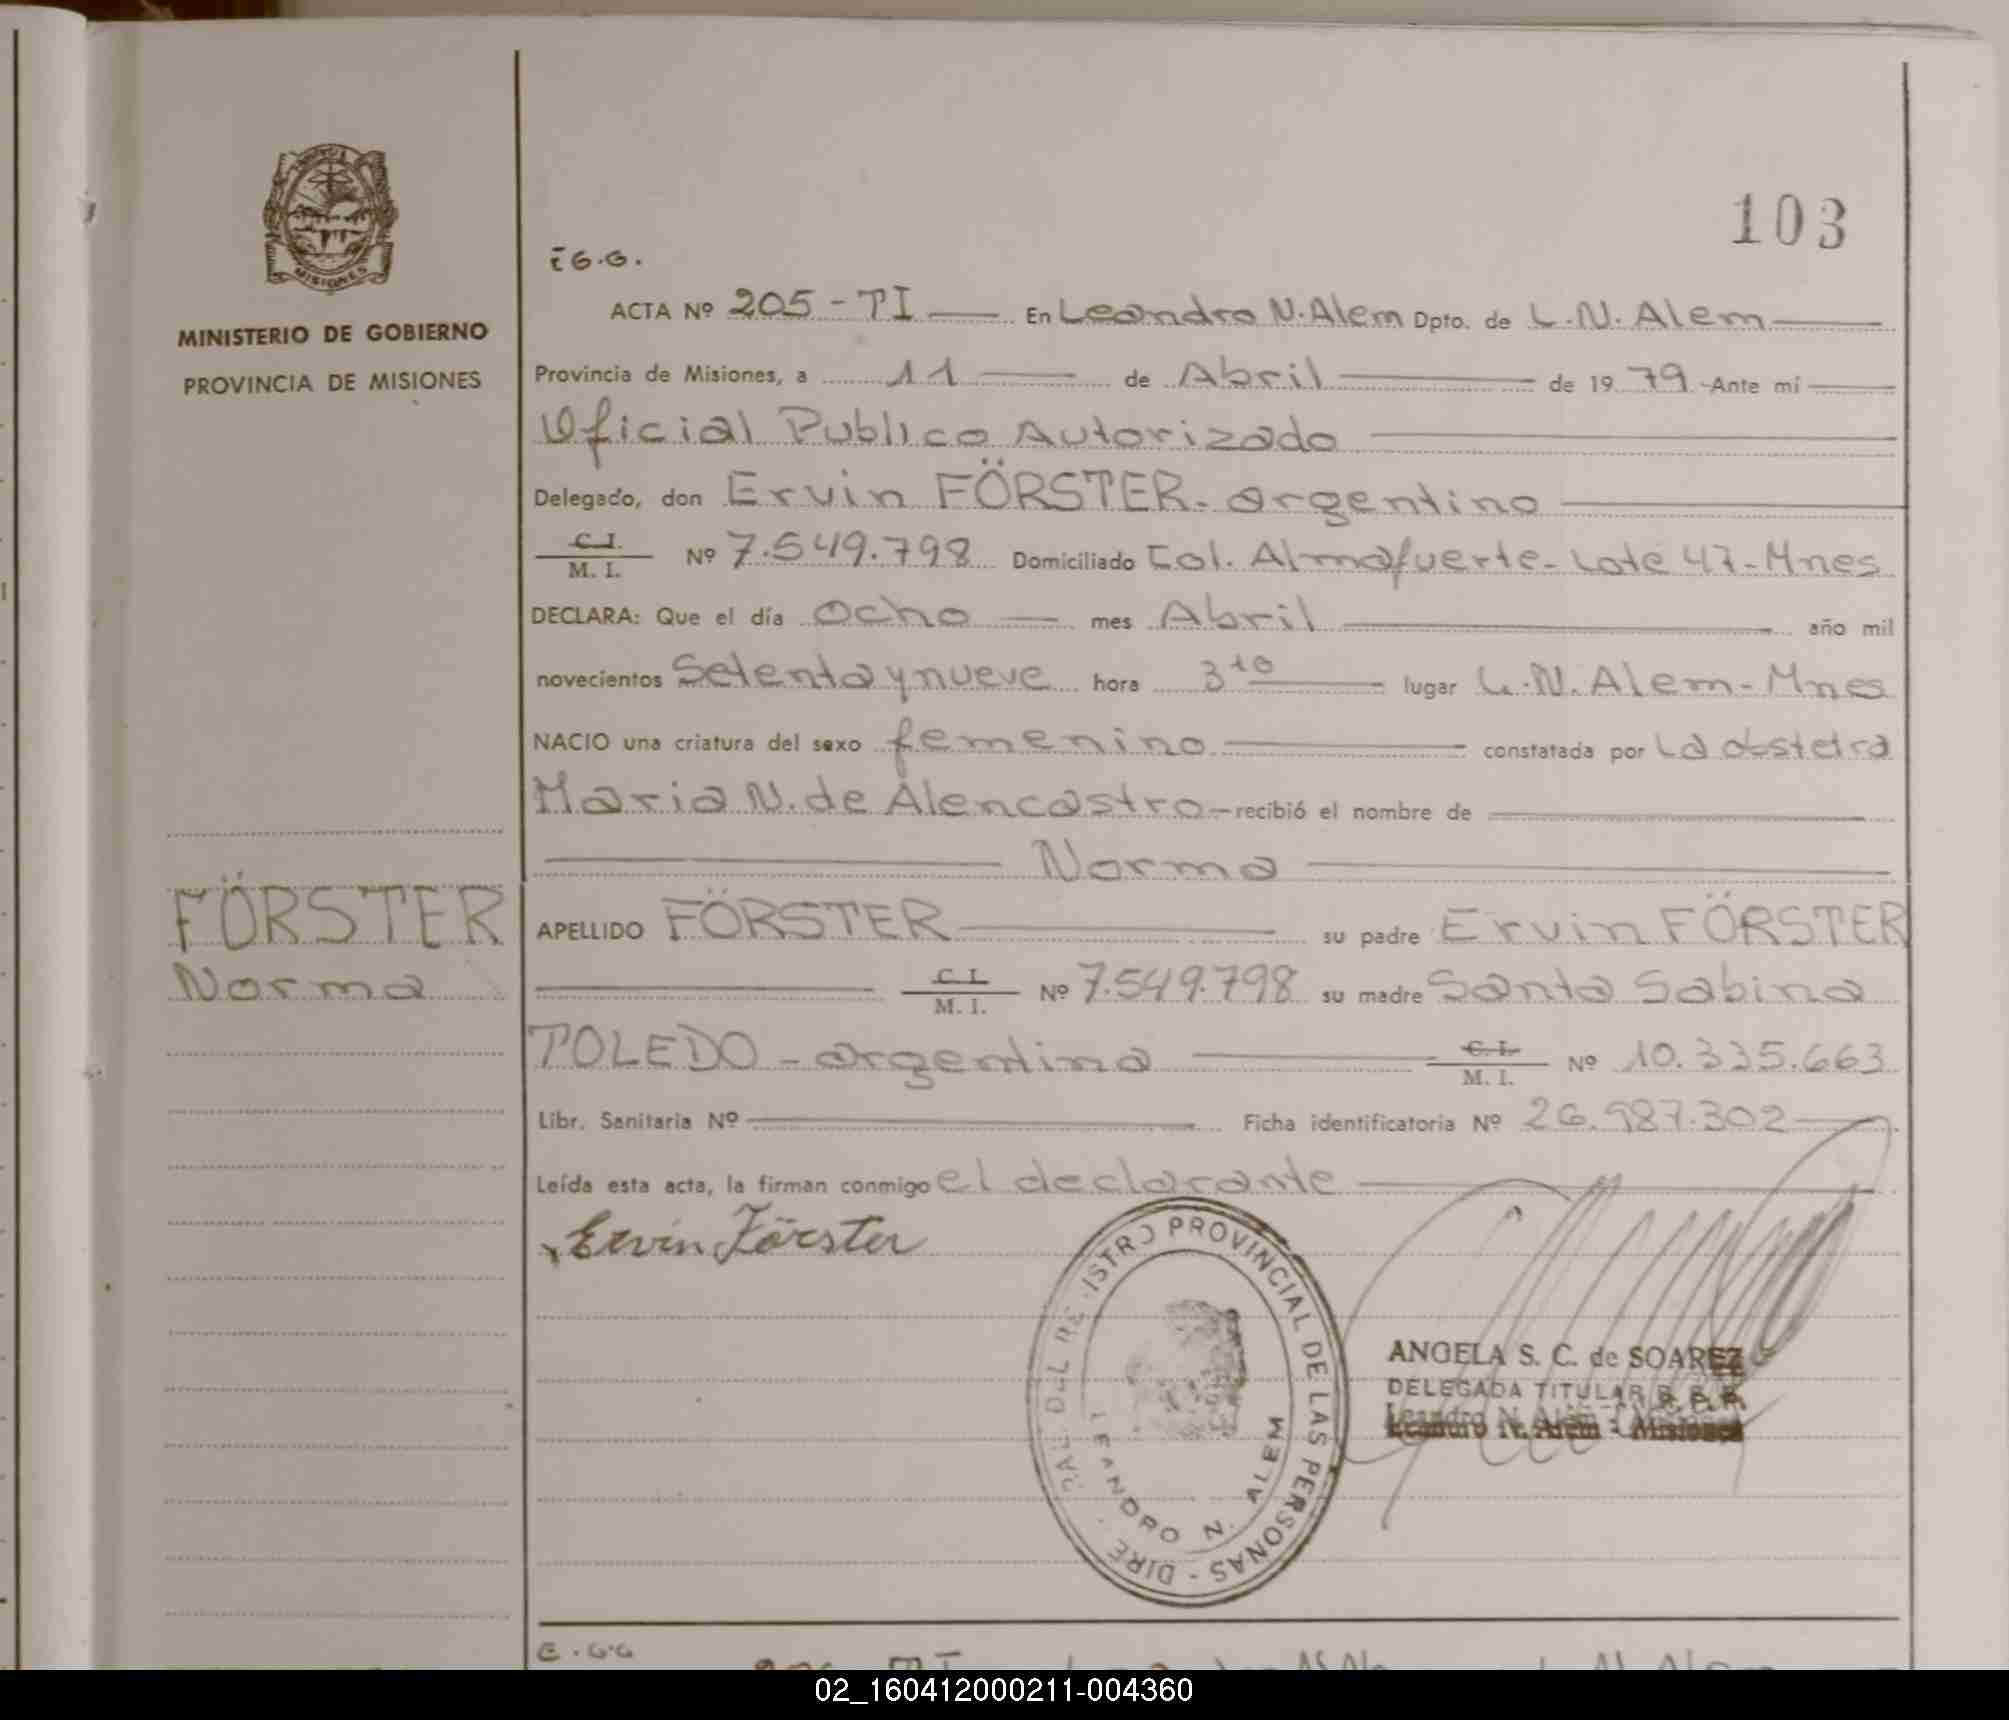 MISIONES
MINISTERIO DE GOBIERNO
PROVINCIA DE MISIONES
103
G.G.
ACTA Nº 205 - TI En Leandro N. Alem Dpto. de L.N. Alem
Provincia de Misiones, a 11 de Abril de 19 79 - Ante mí
Oficial Publico Autorizado
Delegado, don Ervin FÖRSTER - argentino
C.I.
M. I. Nº 7.549.798 Domiciliado Col. Almafuerte - Lote 47 - Mnes
DECLARA: Que el día ocho mes Abril año mil
novecientos Setenta y nueve hora 3 to lugar L.N. Alem - Mnes
NACIO una criatura del sexo femenino constatada por La obstetra
Maria N. de Alencastro - recibió el nombre de
Norma
FÖRSTER
Norma
APELLIDO FÖRSTER su padre Ervin FÖRSTER
C. I.
M. I. Nº 7.549.798 su madre Santa Sabina
TOLEDO - argentina C. I.
M. I. Nº 10.335.663
Libr. Sanitaria Nº Ficha identificatoria Nº 26.987.302
Leída esta acta, la firman conmigo el declarante
Ervin Förster
PROVINCIAL DE LAS PERSONAS - DIRE
LEANDRO N. ALEM
ANGELA S. C. de SOAREZ
DELEGADA TITULAR
Leandro N. Alem - Misiones
E. G G
02_160412000211-004360